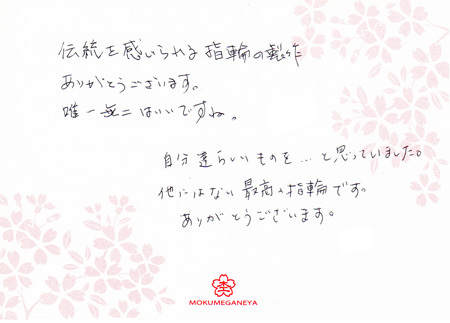 伝統を感じられる指輪の製作
ありがとうございます。
唯一無二はいいですね。
自分達らしいものを…と思っていました。
他にはない最高の指輪です。
ありがとうございます。
MOKUMEGANEYA